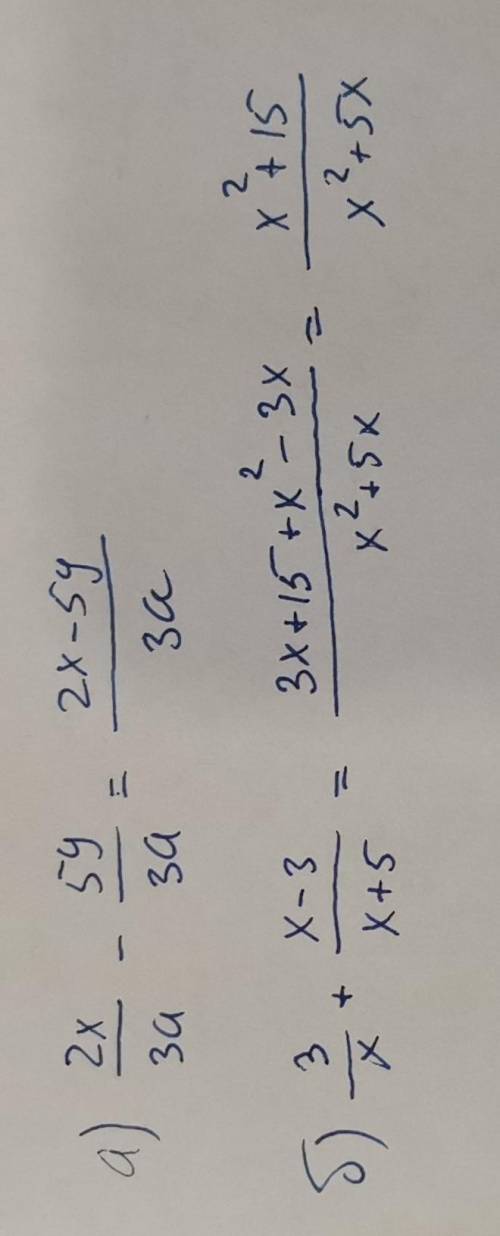 а) 2x/3a - 5y/3a = (2x - 5y)/3a
б) 3/x + (x - 3)/(x + 5) = (3x + 15 + x² - 3x)/(x² + 5x) = (x² + 15)/(x² + 5x)